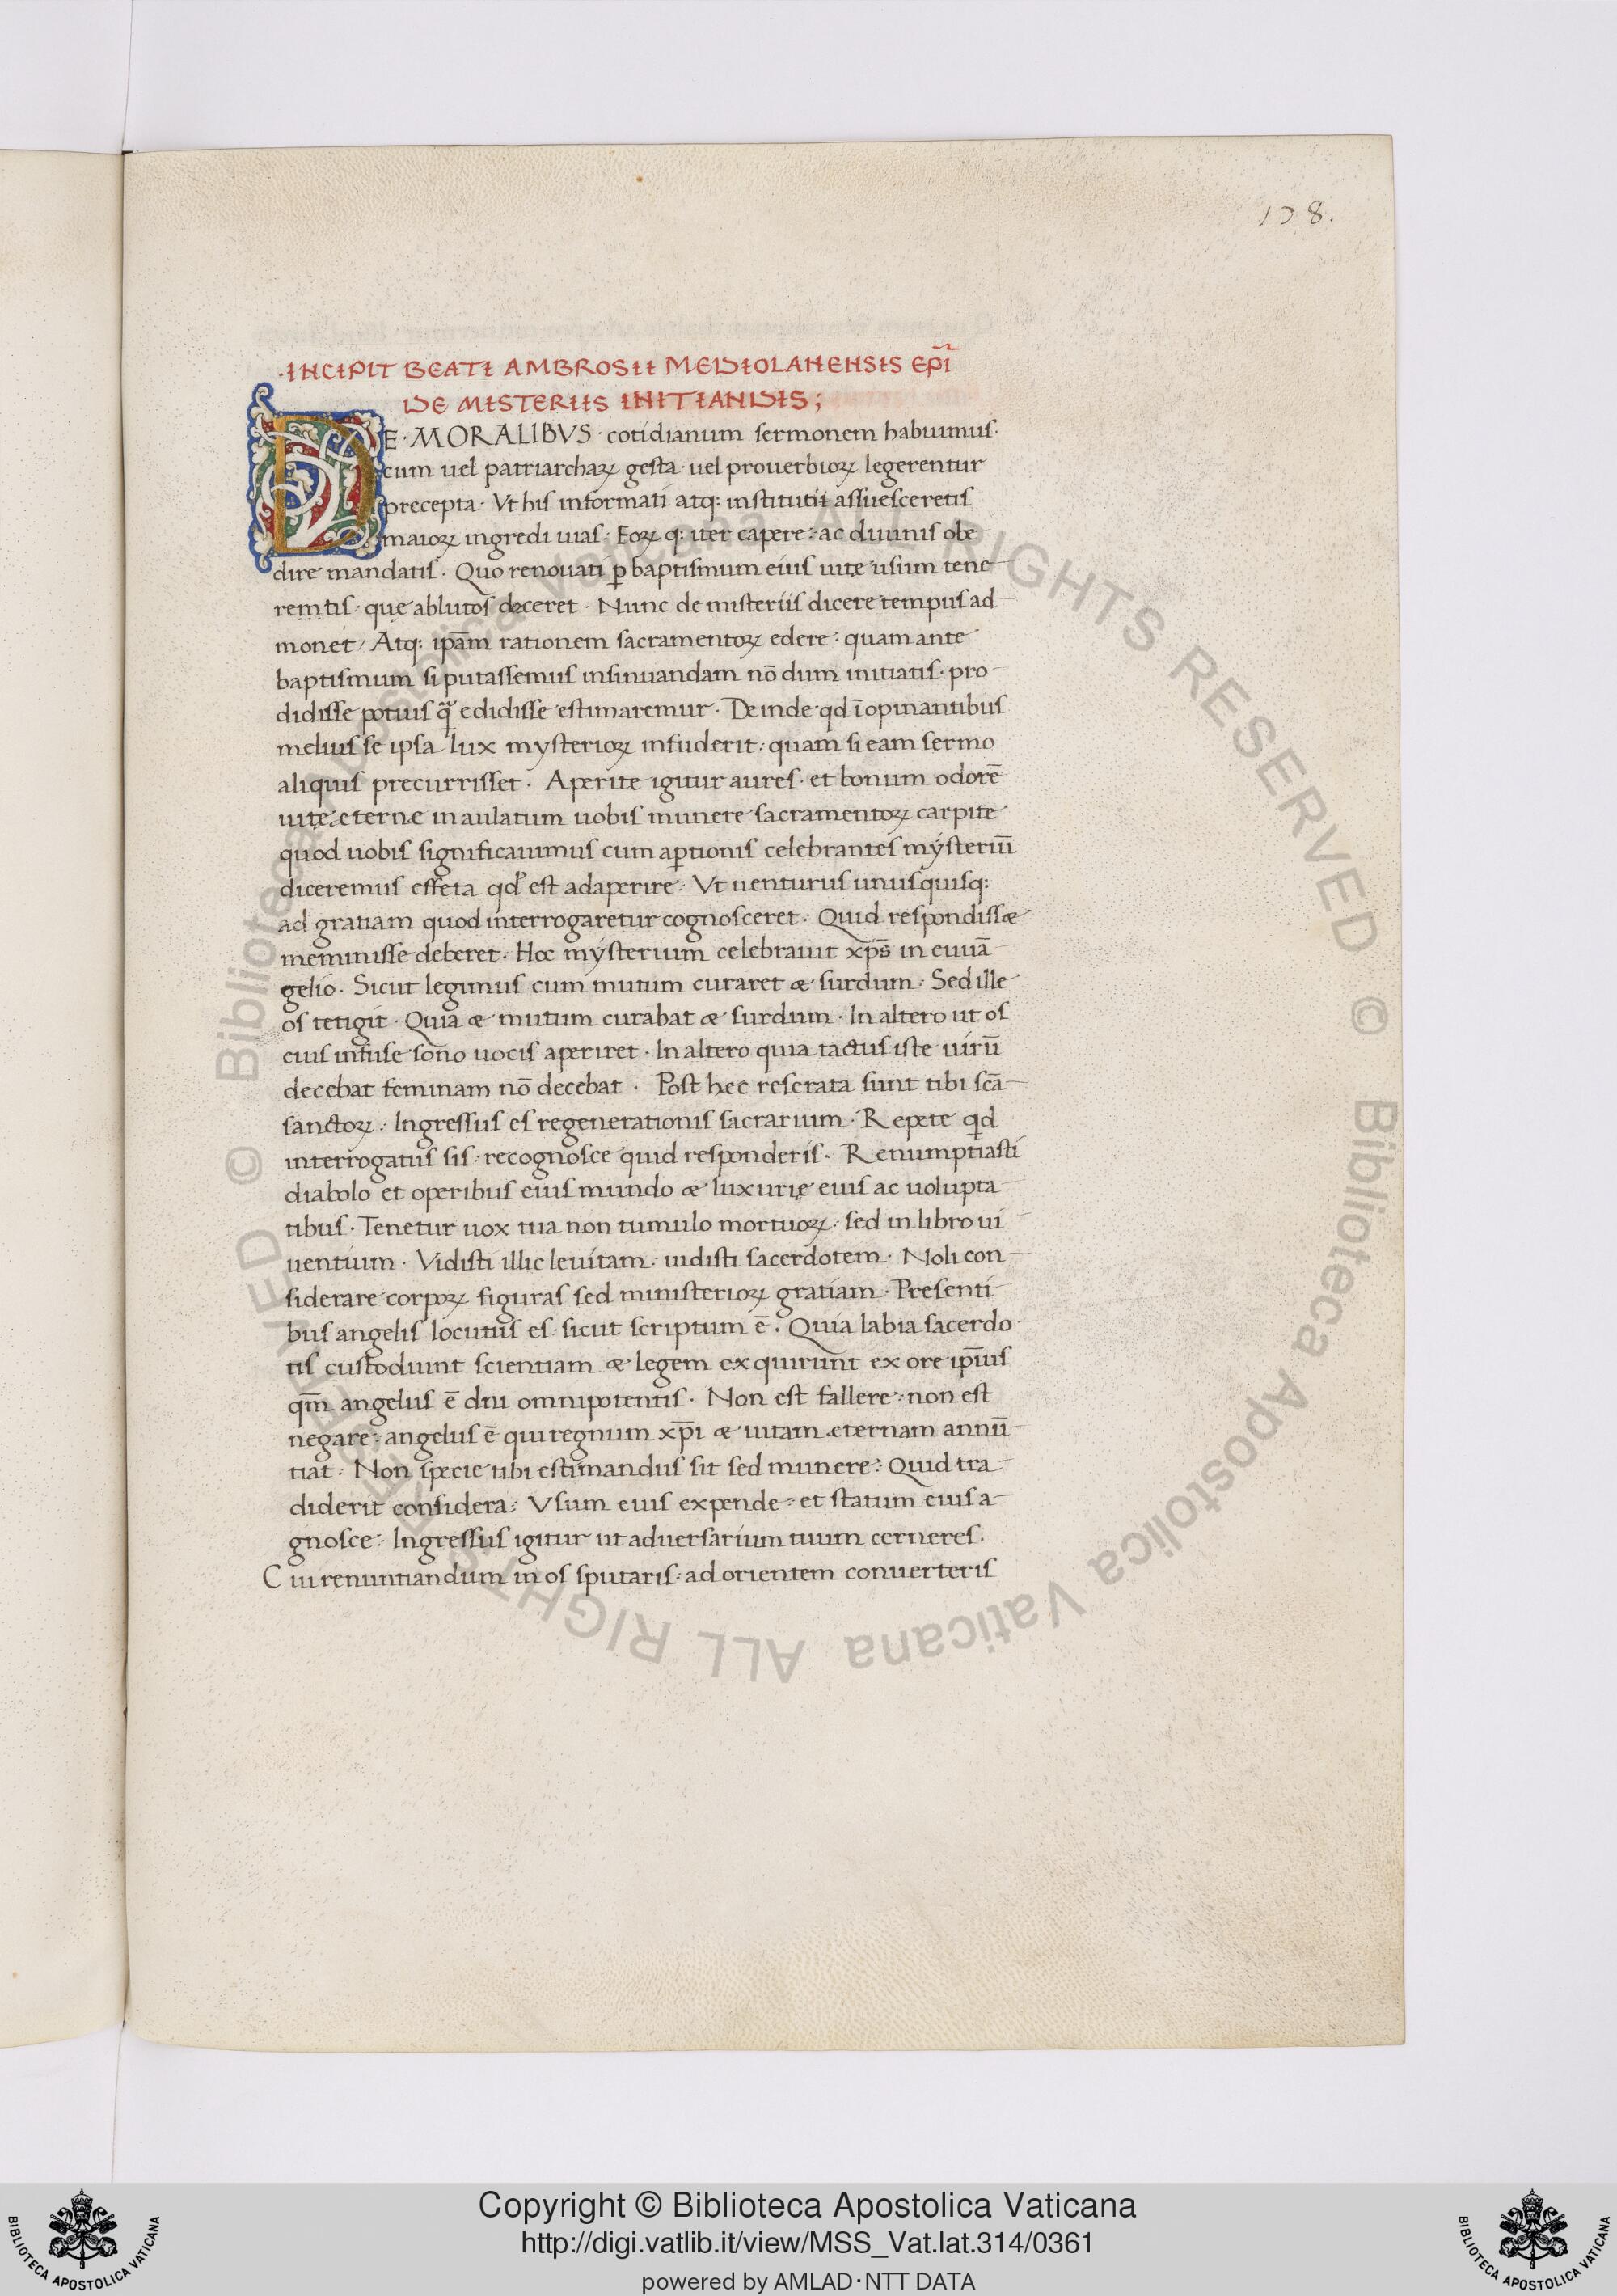 178.
·INCIPIT BEATI AMBROSII MEDIOLANENSIS EPĪ
DE MISTERIIS INITIANDIS;
DE·MORALIBVS·cotidianum sermonem habuimus·
cum uel patriarchaꝝ gesta·uel prouerbioꝝ legerentur
precepta· Vt his informati atq: institutit assuesceretis
maioꝝ ingredi uias: Eoꝝ q: iter capere: ac diuinis obe
dire mandatis· Quo renouati ꝑ baptismum eius uitę usum tene
remtis: quę ablutos deceret· Nunc de misteriis dicere tempus ad
monet/ Atq: ip̄am rationem sacramentoꝝ edere: quam ante
baptismum si putassemus insinuandam nō dum initiatis·pro
didisse potius q̄ edidisse estimaremur· Deinde qd īopinantibus
melius se ipsa lux mysterioꝝ infuderit: quam si eam sermo
aliquis precurrisset· Aperite igitur aures·et bonum odorē
uitę eterne inaulatum uobis munere sacramentoꝝ carpite
quod uobis significauimus cum aꝑtionis celebrantes mysteriū
diceremus effeta qd̓ est adaperire: Vt uenturus unusquisq:
ad gratiam quod interrogaretur cognosceret· Quid respondissæ
meminisse deberet· Hoc mysterium celebrauit xp̄s in euuā
gelio· Sicut legimus cum mutum curaret æ surdum: Sed ille
os tetigit· Quia æ mutum curabat æ surdum· In altero ut os
eius infuse sono uocis aperiret· In altero quia tactus iste uirū
decebat feminam nō decebat· Post hec reserata sunt tibi scā
sanctoꝝ: Ingressus es regenerationis sacrarium· Repete qd
interrogatus sis: recognosce quid responderis· Renumptiasti
diabolo et operibus eius mundo æ luxurię eius ac uolupta
tibus· Tenetur uox tua non tumulo mortuoꝝ: sed in libro ui
uentium· Vidisti illic leuitam: uidisti sacerdotem· Noli con
siderare corpoꝝ figuras sed ministerioꝝ gratiam· Presenti
bus angelis locutus es: sicut scriptum ē· Quia labia sacerdo
tis custodiunt scientiam æ legem exquirunt ex ore ip̄ius
qm̄ angelus ē dni omnipotentis· Non est fallere: non est
negare: angelus ē qui regnum xp̄i æ uitam eternam annū
tiat: Non specie tibi estimandus sit sed munere: Quid tra
diderit considera: Vsum eius expende: et statum eius a
gnosce: Ingressus igitur ut aduersarium tuum cerneres·
Cui renuntiandum in os sputaris: ad orientem conuerteris
© Biblioteca Apostolica Vaticana ALL RIGHTS RESERVED © Biblioteca Apostolica Vaticana ALL RIGHTS RESERVED
Copyright © Biblioteca Apostolica Vaticana
http://digi.vatlib.it/view/MSS_Vat.lat.314/0361
powered by AMLAD·NTT DATA
BIBLIOTECA APOSTOLICA VATICANA
BIBLIOTECA APOSTOLICA VATICANA